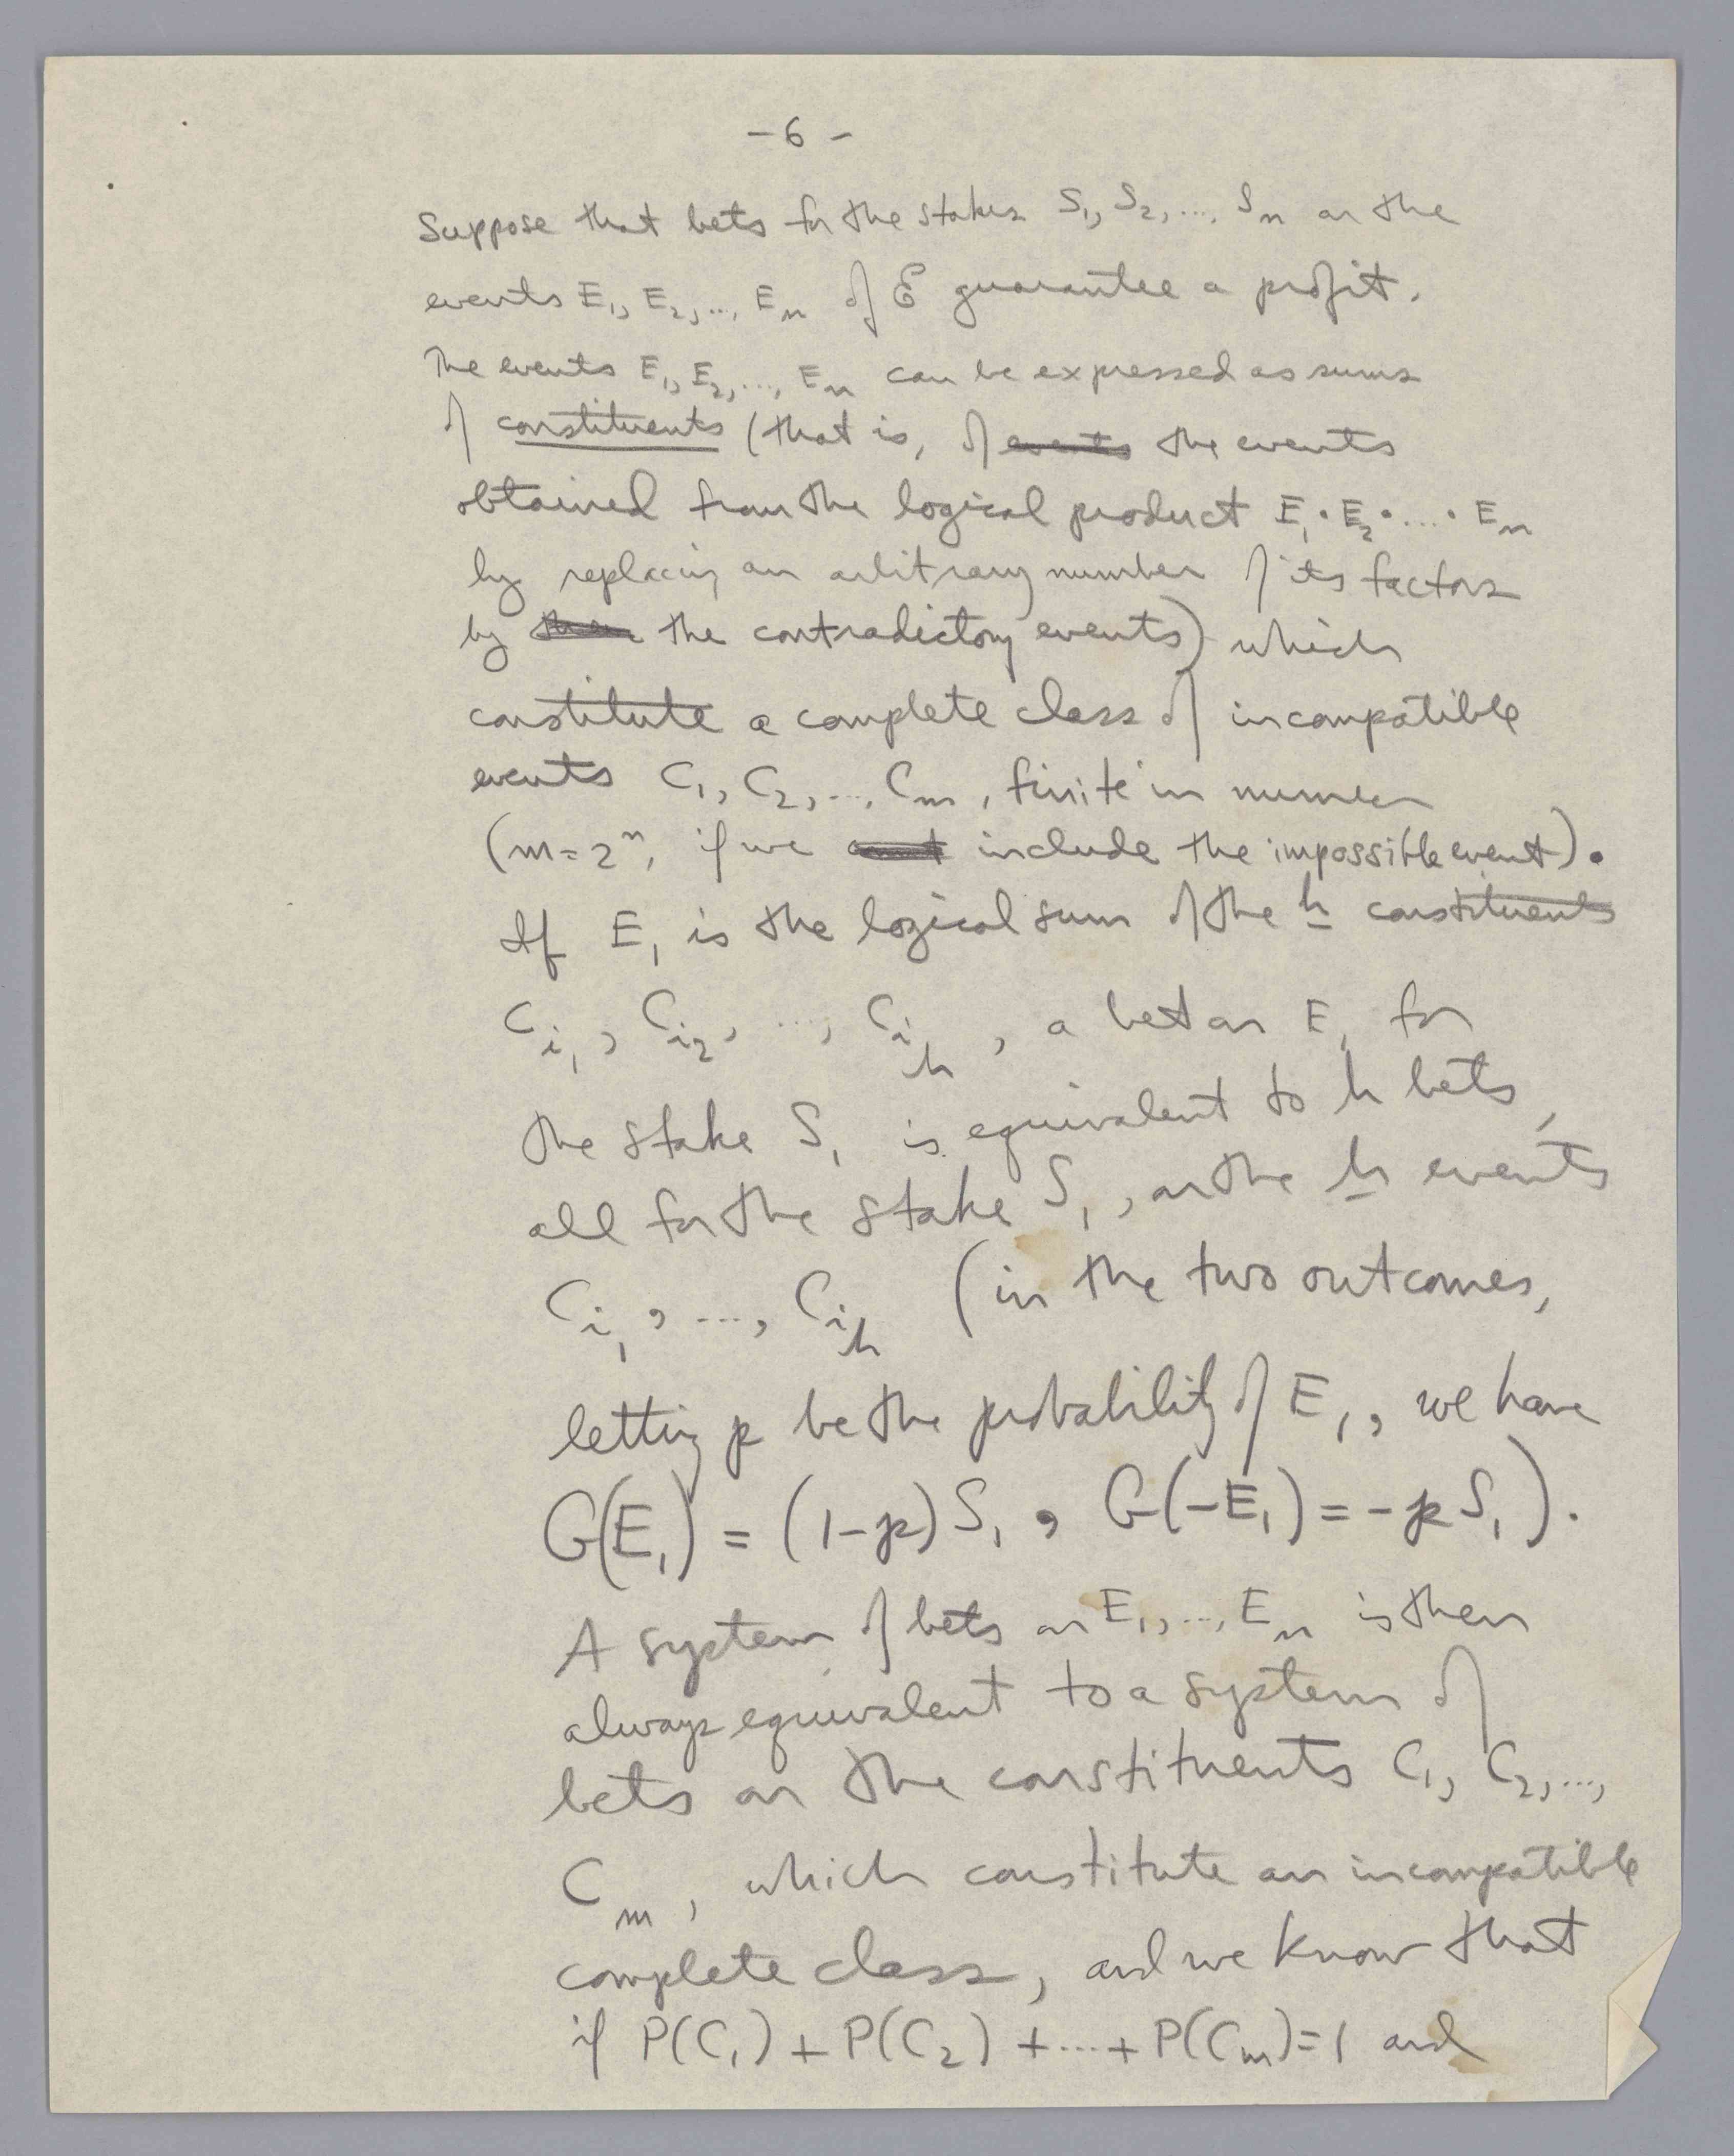 -6-
Suppose that bets for the stakes S₁, S₂, ..., Sₙ on the
events E₁, E₂, ..., Eₙ of ℰ guarantee a profit.
The events E₁, E₂, ..., Eₙ can be expressed as sums
of constituents (that is, of events the events
obtained from the logical product E₁·E₂·....·Eₙ
by replacing an arbitrary number of its factors
by the the contradictory events) which
constitute a complete class of incompatible
events C₁, C₂, ..., Cₘ, finite in number
(m=2ⁿ, if we include the impossible event).
If E₁ is the logical sum of the h constituents
C_i₁, C_i₂, ..., C_i_h, a bet on E₁ for
the stake S₁ is equivalent to h bets,
all for the stake S₁, on the h events
C_i₁, ..., C_i_h (in the two outcomes,
letting p be the probability of E₁, we have
G(E₁) = (1-p)S₁, G(-E₁) = -pS₁).
A system of bets on E₁, ..., Eₙ is then
always equivalent to a system of
bets on the constituents C₁, C₂, ...,
Cₘ, which constitute an incompatible
complete class, and we know that
if P(C₁) + P(C₂) + ... + P(Cₘ) = 1 and